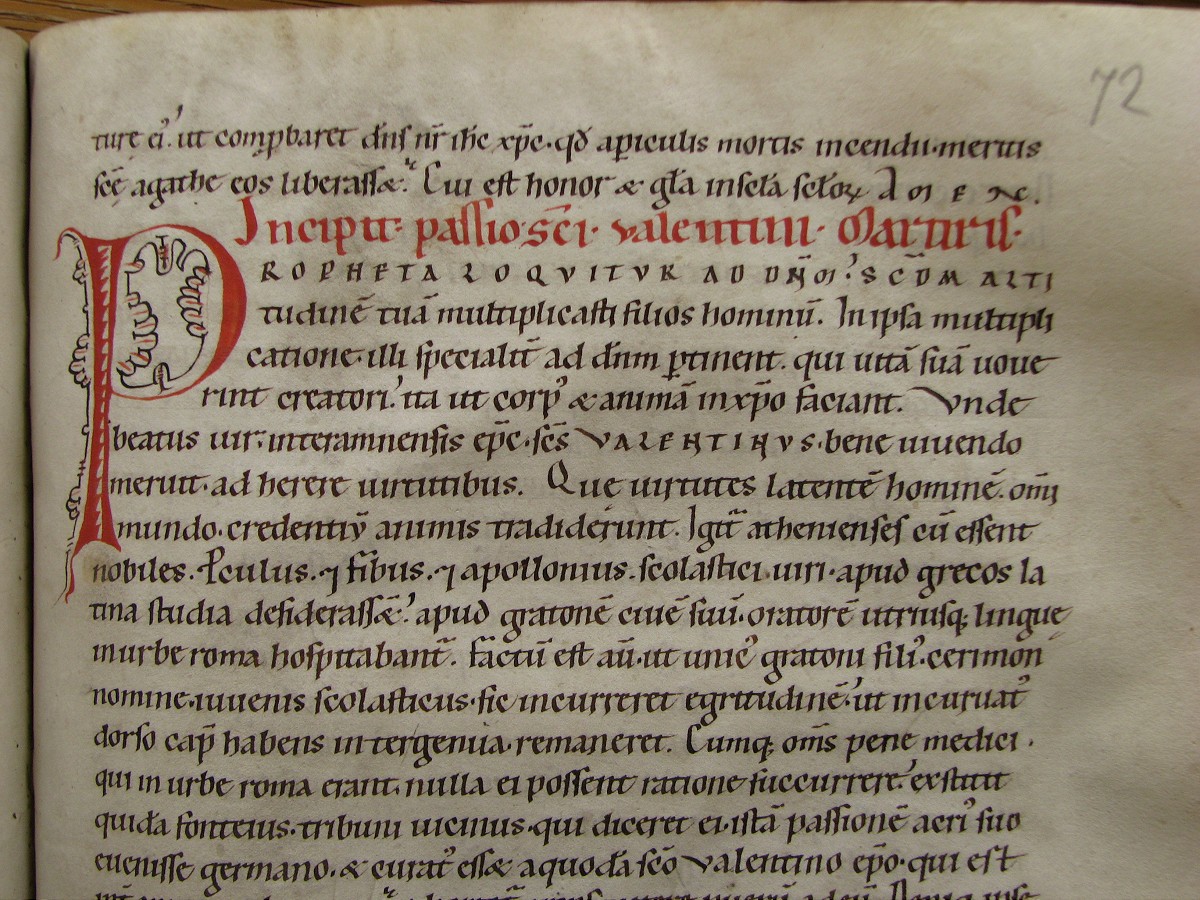 72
ture ei᾽. ut comp̱baret dn̄s nr̄ ih̄c xp̄c. qđ a periculis mortis incendii. meritis
scē agathe eos liberassæ. Cui est honor & gl̄a in scl̄a scl̄oꝝ Amen.
Incipit passio. sc̄i. valentini. Martiris.
PROPHETA LOQVITVR AD DN̄M. SCD̄M ALTI
tudinē tuā multiplicasti filios hominū. In ipsa multipli
catione. illi specialit̄ ad dn̄m ꝑtinent. qui vitā suā uoue
rint creatori. ita ut corp᾽ & animā in xp̄o faciant. Vnde
beatus uir. interamnensis ep̄c. sc̄s VALENTINVS. bene uiuendo
meruit. ad herere uirtutibus. Que uirtutes latentē hominē. om̄i
mundo. credentiū animis tradiderunt. Igit᾽ athenienses cū essent
nobiles. Ꝓculus. ⁊ fībus. ⁊ apollonius. scolastici. uiri. apud grecos la
tina studia desiderassæ. apud gratonē ciuē suū. oratorē utriusqꝫ lingue
in urbe roma hospitabant᾽. Factū est aū. ut unic᾽ gratoni fili᾽. cerimon
nomine. iuuenis scolasticus. sic incurreret egritudinē. ut incuruat᾽
dorso cap̄ habens inter genua. remaneret. Cumqꝫ om̄s pene medici.
qui in urbe roma erant. nulla ei possent ratione succurrere. exstitit
quidā fonteius. tribuni uicinus. qui diceret ei. istā passionē aeri᾽ suo
euenisse germano. & curat᾽ essæ a quodā sc̄o valentino ep̄o. qui est